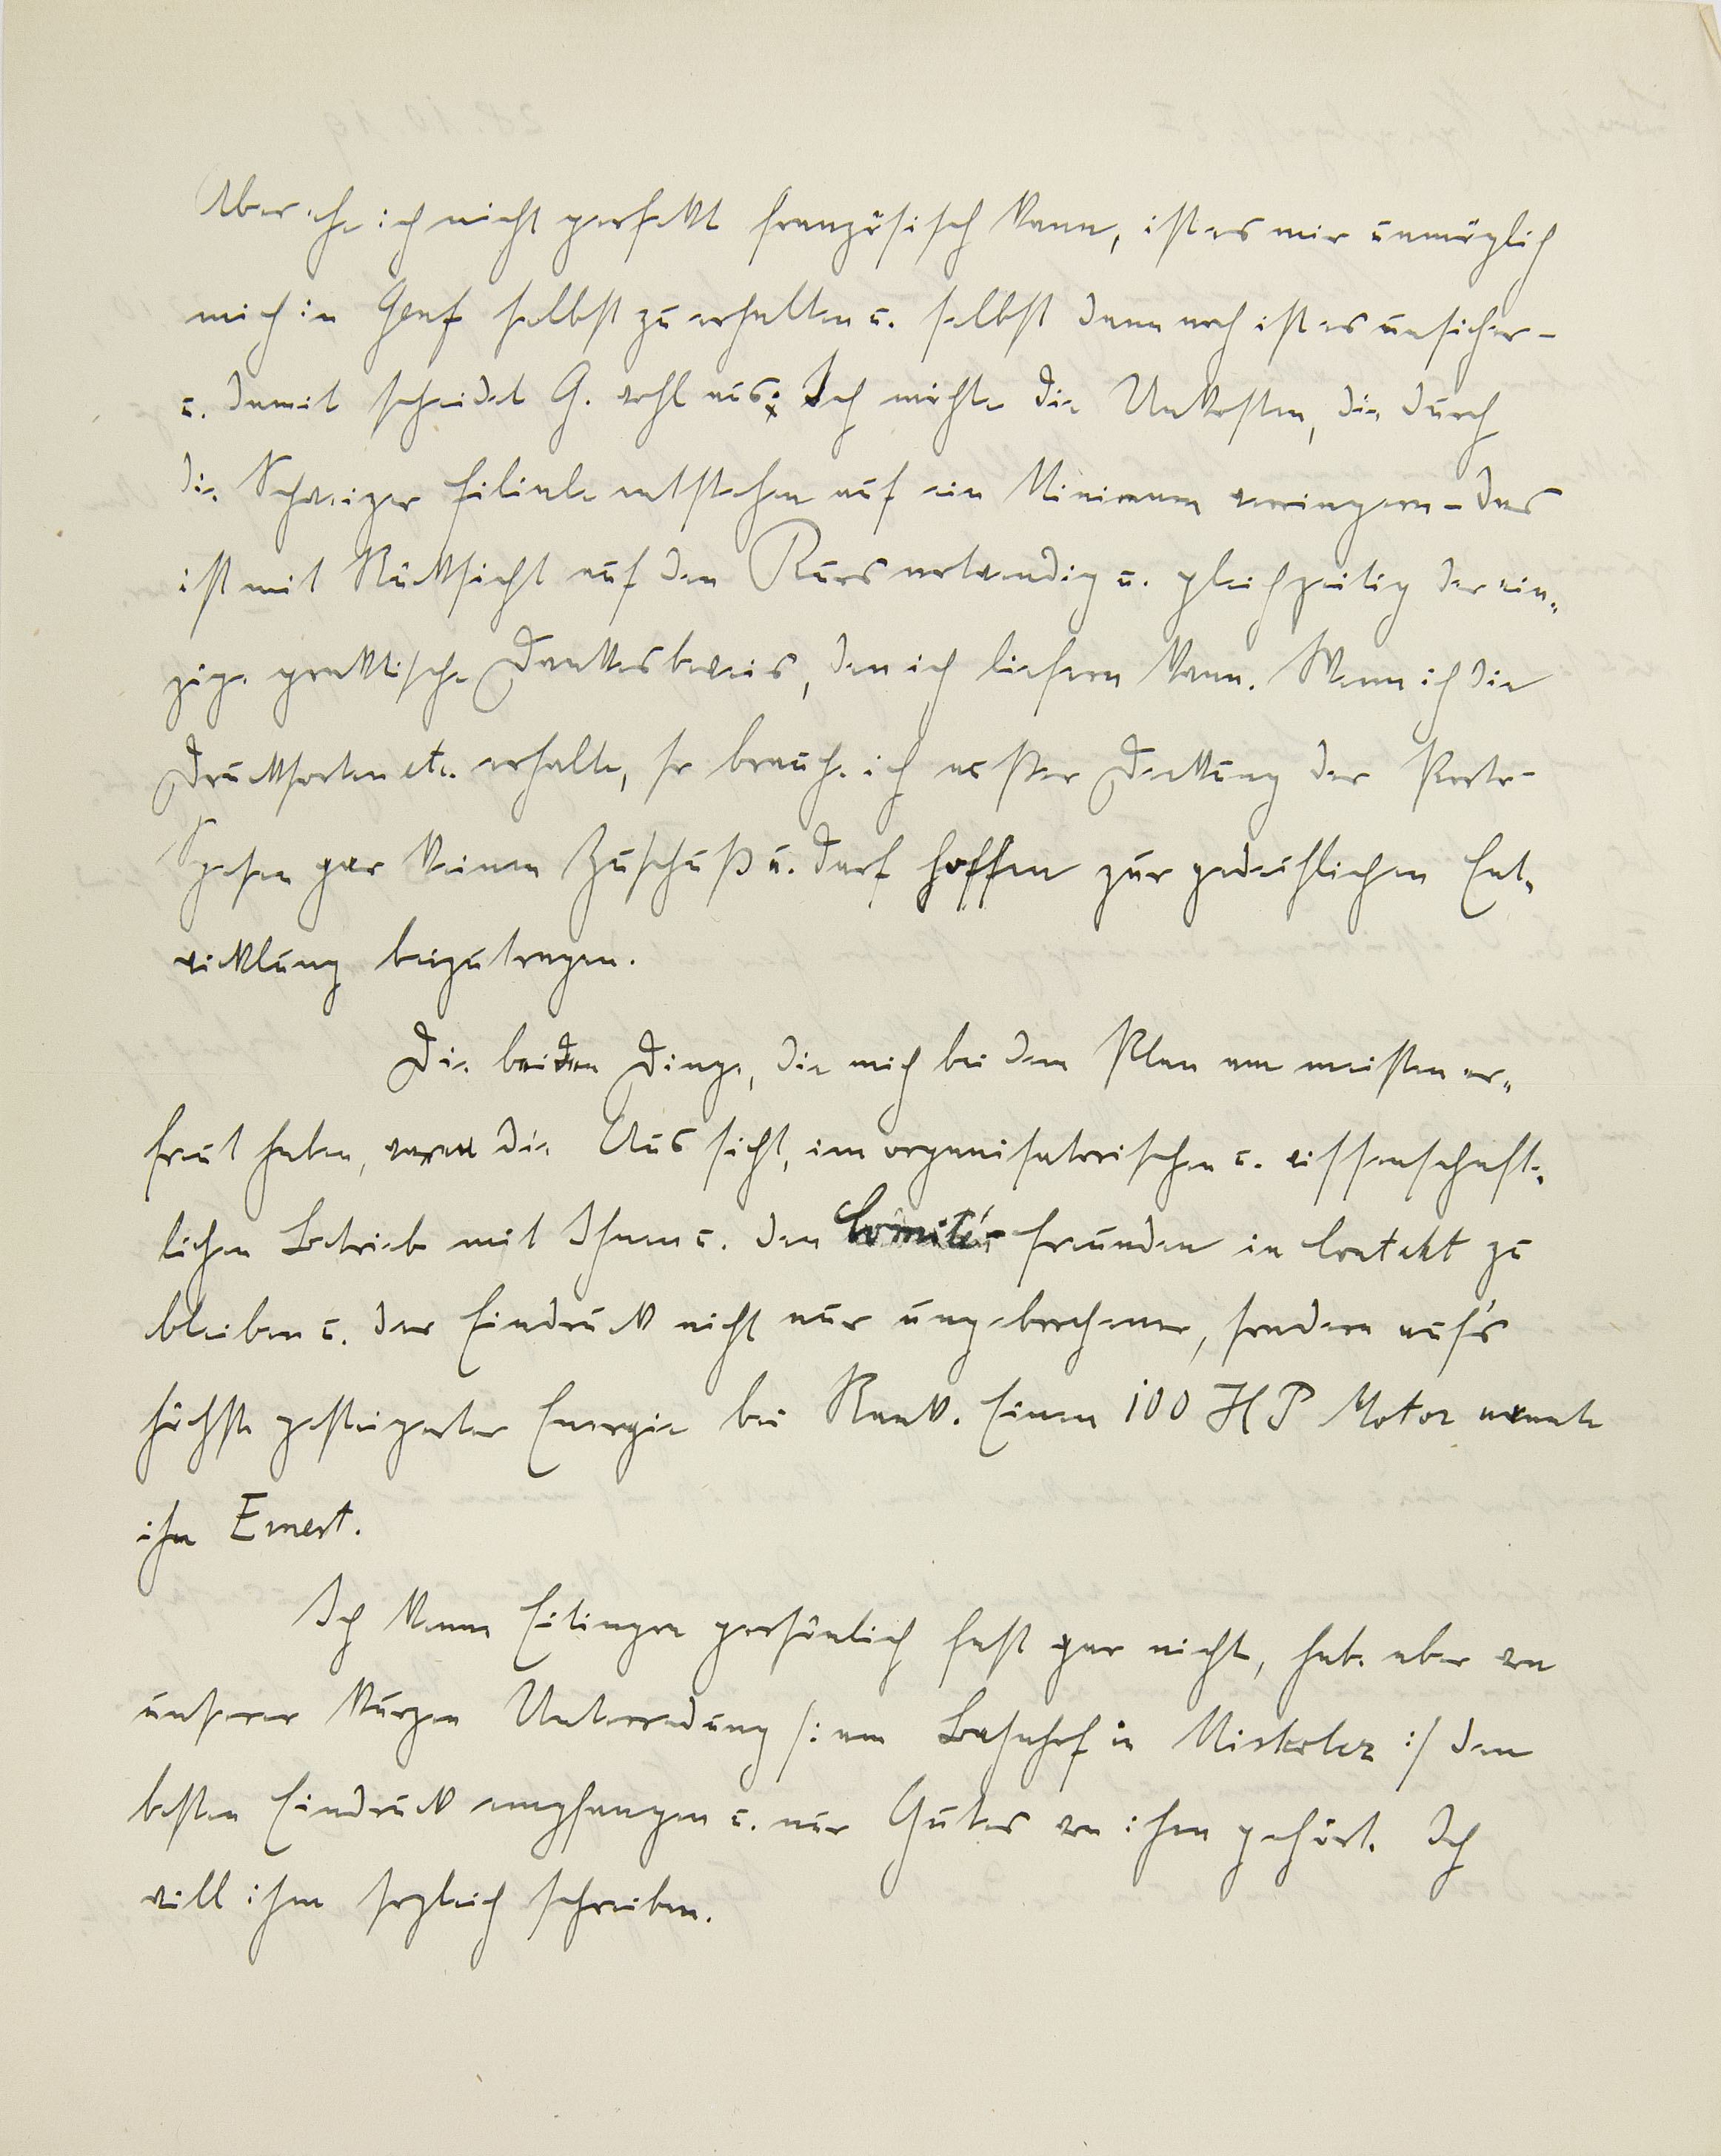 Aber ehe ich nicht perfekt französisch kann, ist es mir unmöglich
mich in Genf selbst zu erhalten u. selbst dann noch ist es unsicher –
u. damit scheidet G. wohl aus. Ich möchte die Unkosten, die durch
die Schweizer Filiale entstehen auf ein Minimum verringern – das
ist mit Rücksicht auf den Kurs notwendig u. gleichzeitig der ein„
zige praktische Dankesbeweis, den ich liefern kann. Wenn ich die
Drucksorten etc. erhalte, so brauche ich außer Deckung der Porto-
Spesen gar keinen Zuschuß u. darf hoffen zur gedeihlichen Ent„
wicklung beizutragen.
Die beiden Dinge, die mich bei dem Plan am meisten er„
freut haben, waren die Aussicht, im organisatorischen u. wissenschaft„
lichen Betrieb mit Ihnen u. den Comité's freunden in Contakt zu
bleiben u. der Eindruck nicht nur ungebrochener, sondern auf's
höchste gesteigerter Energie bei Rank. Einen 100 HP Motor nannte
ihn Ernest.
Ich kenne Eitingon persönlich fast gar nicht, habe aber von
unserer kurzen Unterredung /: am Bahnhof in Miskolcz :/ den
besten Eindruck empfangen u. nur Gutes von ihm gehört. Ich
will ihm sogleich schreiben.